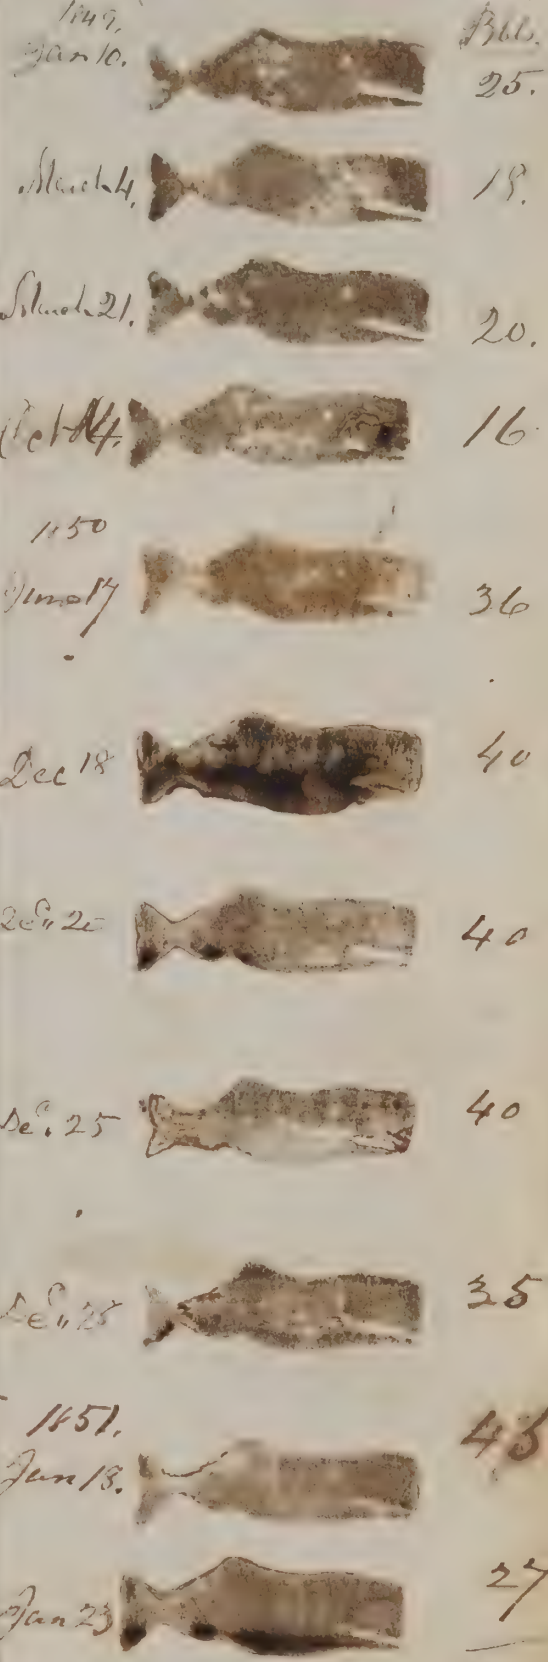 1849.
Jan 10. Bbls.
25.
March 4, 18.
March 21. 20.
Oct 4. 16
1850
June 17 36
Dec 18 40
De" 20 40
De" 25 40
De" 28 35
1851.
Jan 13. 45
Jan 23 27